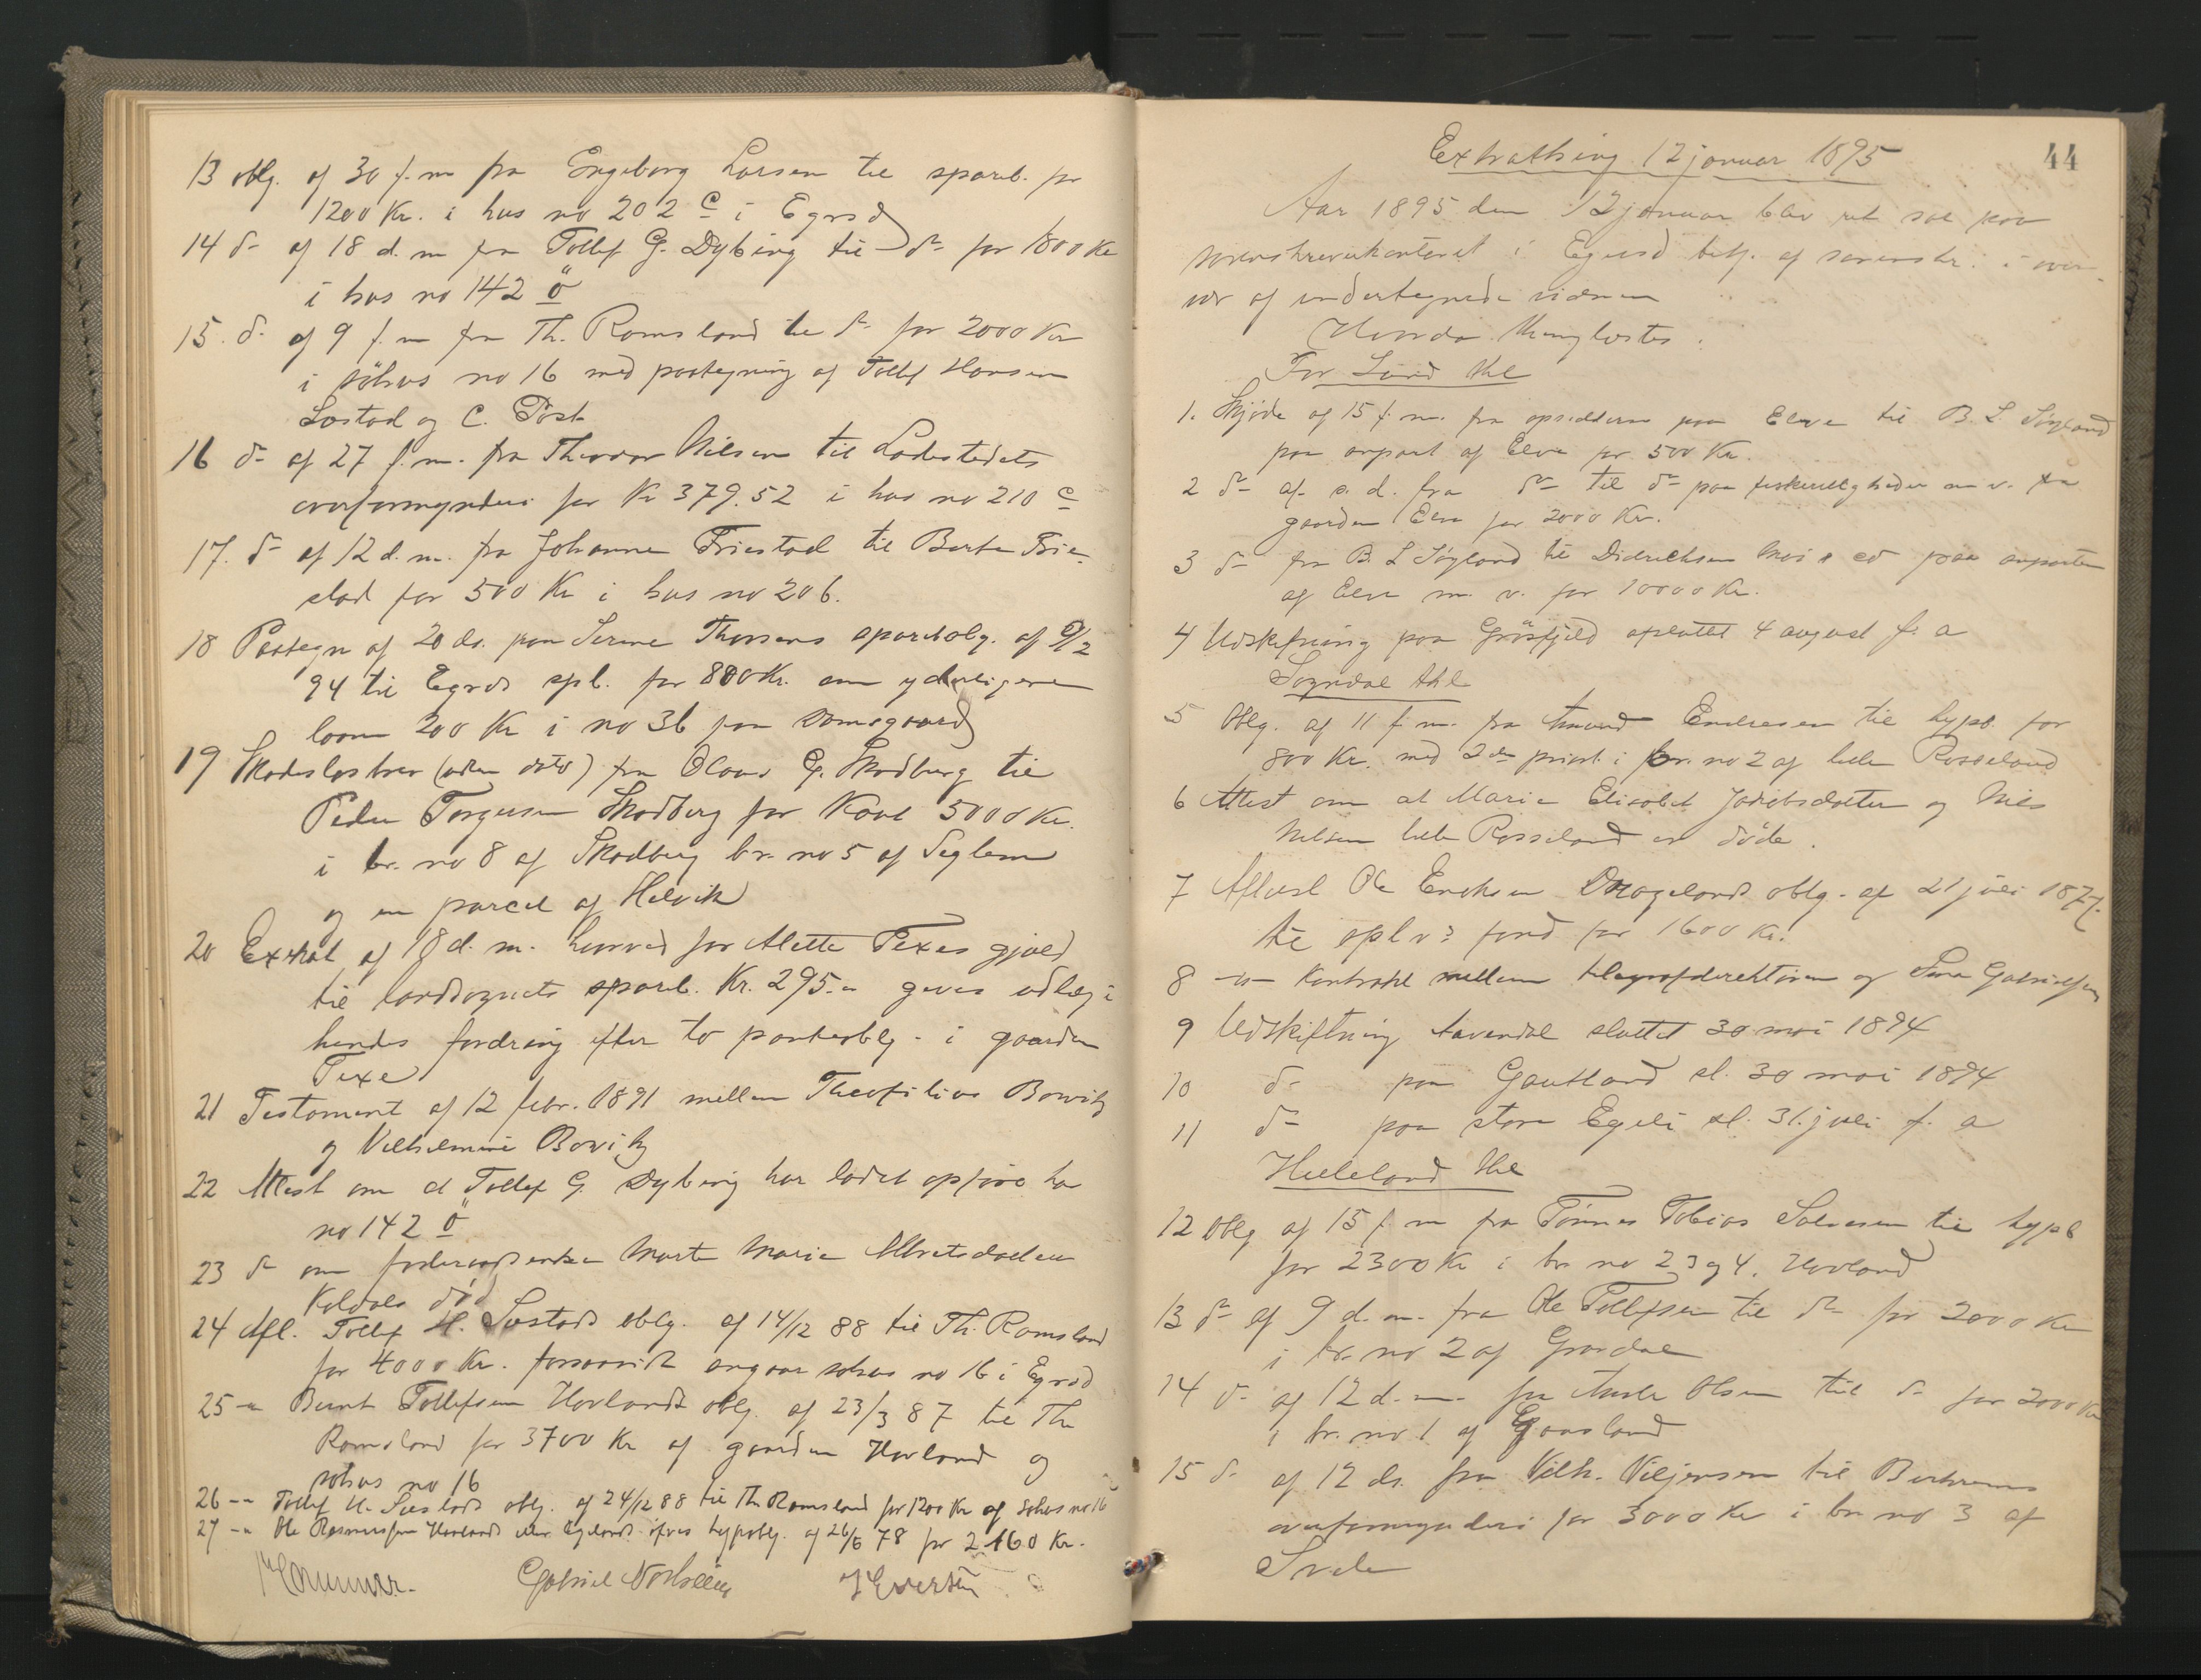 13 oblg. af 30 f. m fra Engeborg Larsen til spareb. for
1200 Kr. i hus no 202 c i Egrsd
14 do af 18 d. m fra Tollef G. Dybing til do for 1800 Kr
i hus no 142 ö
15. do af 9 f. m fra Th. Romsland til do for 2000 Kr
i söhus no 16 med paategning af Tollef Hansen
Sostad og C. Post
16 do af 27 f. m. fra Theodor Nilsen til Ladestedets
overformynderi for Kr 379.52 i hus no 210 c
17. do af 12 d. m. fra Johanne Friestad til Berte Frie-
stad for 500 Kr i hus no 206.
18 Paategn af 20 ds. paa Serine Thorsens sparebolg. af 9/2
94 til Egrsd spb. for 800 Kr. om yderligere
laan 200 Kr i no 36 paa Damsgaard
19 Skadeslosbrev (uden dato) fra Olaus G. Skadberg til
Peder Torgersen Skadberg for Kavt 5000 Kr.
i br. no 8 af Skadberg br. no 5 af Seglem
og en parcel af Helvik
20 Extrat af 18 d. m. hvorved for Alette Texes gjæld
til landsognets spareb. Kr. 295.- gives udlæg i
hendes fordring efter to panteoblg. i gaarden
Texe
21 Testament af 12 febr. 1891 mellem Theofilius Bowitz
og Vilhelmine Bowitz
22 Attest om at Tollef G. Dybing har ladet opføre hus
no 142 ö
23 do om foderaadsenke Marte Marie Albretsdatter
Koldals död
24 Afl. Tollef H. Sostads oblg. af 14/12 88 til Th. Romsland
for 4000 Kr. forsaavidt angaar sohus no 16 i Egrsd
25 -" Bernt Tollefsen Hovlands oblg. af 23/3 87 til Th
Romsland for 3700 Kr af gaarden Hovland og
sohus no 16
26 -" Tollef H. Sostads oblg. af 24/12 88 til Th Romsland for 1200 Kr af sohus no 16
27 -" Ole Rasmussen Hovlands hypoblg. af 26/6 78 for 2160 Kr.
Gabriel
J Evertsen
44
Extrathing 12 januar 1895
Aar 1895 den 12 januar blev ret sat paa
sorenskriverkontoret i Egersd betj. af sorenskr. i over-
vær af undertegnede vidner
Hvorda thinglæstes.
For Lund thl
1. Skjöde af 15 f. m. fra opsidderne paa Eeve til B. L. Sögland
paa anpart af Eeve for 500 Kr.
2 do af s. d. fra do til do paa fiskerettigheder m v. fra
gaarden Eeve for 2000 Kr.
3 do fra B. L Sögland til Didrichsen Moi & co paa anparten
af Eeve m. v. for 10000 Kr.
4 Udskiftning paa Grösfjeld afsluttet 4 august f. a
Sogndal thl
5 Oblg. af 11 f. m. fra Amund Endresen til hypb. for
800 Kr. med 2den priort. i br. no 2 af lille Rosseland
6 Attest om at Marie Elisabet Jakobsdatter og Nils
Nilsen lille Rosseland er döde.
7 Aflæst Ole Eriksen Dragelands oblg. af 21 juli 1877
til oplvs fond for 1600 Kr.
8 -"- Kontrakt mellem telegrafdirektören og Sina Gabrielsen
9 Udskiftning Aavendal sluttet 30 mai 1894
10 do paa Gautland sl. 30 mai 1894
11 do paa store Egeli sl. 31. juli f. a
Helleland thl
12 Oblg af 15 f. m fra Tönnes Tobias Salvesen til hypb
for 2300 Kr i br no 2 3 og 4. Hovland
13 do af 9 d. m. fra Ole Tollefsen til do for 2000 Kr
i br. no 2 af Gyadal
14 do af 12 d. m. fra Olsen til do for 2000 Kr
i br. no 1 af Gaasland
15 do af 12 ds. fra Vilh. Viljensen til Birkrems
overformynderi for 3000 Kr i br no 3 af
Svele